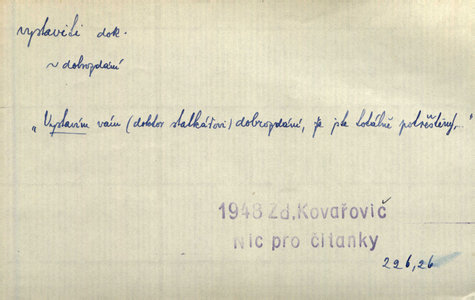 vystaviti dok.
~ dobrozdání
„Vystavím vám (doktor statkářovi) dobrozdání, že jste totálně potřeštěný..."
1948 Zd, Kovařovič
Nic pro čítanky
226,26